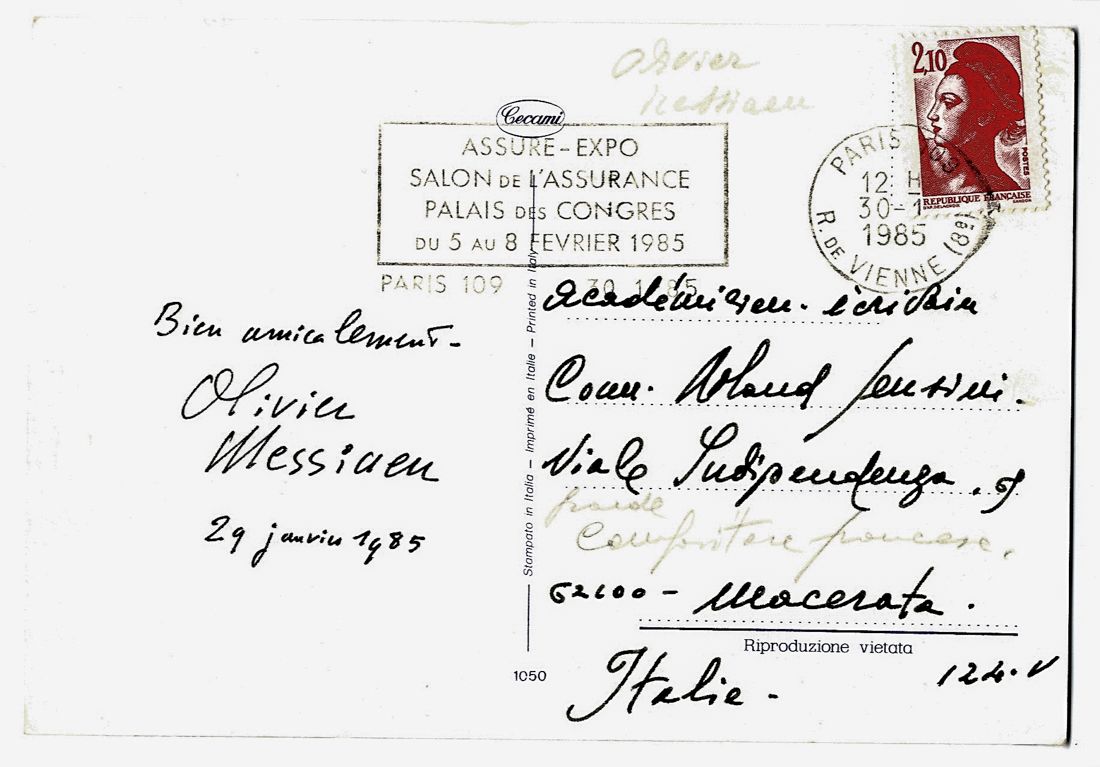 Olivier
Messiaen
2,10
POSTES
REPUBLIQUE FRANÇAISE
D'AP. DELACROIX GANDON
Cecami
ASSURE-EXPO
SALON DE L'ASSURANCE
PALAIS DES CONGRES
DU 5 AU 8 FEVRIER 1985
PARIS 109 30.1.85
PARIS 109
12 H
30-1
1985
R. DE VIENNE (8e)
Bien amicalement-
Olivier
Messiaen
29 janvier 1985
Stampato in Italia - Imprimé en Italie - Printed in Italy
1050
Académicien. écrivain
Comm. Roland Sensini.
Viale Indipendenza.
grande
Compositore francese.
62100 - Macerata.
Riproduzione vietata
Italie-
124.V